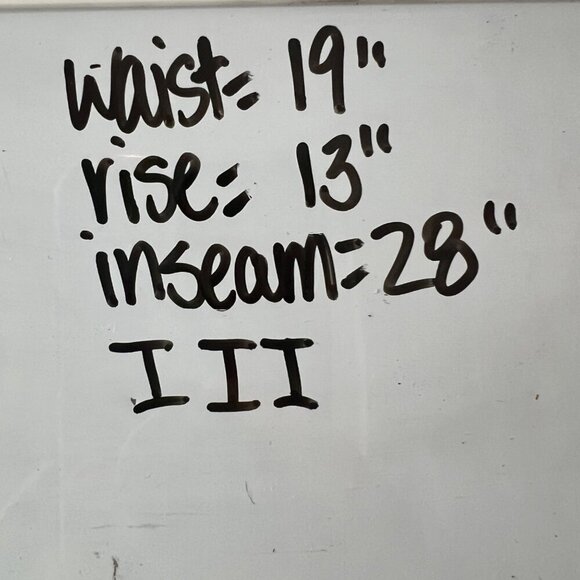 waist= 19"
rise= 13"
inseam= 28"
III